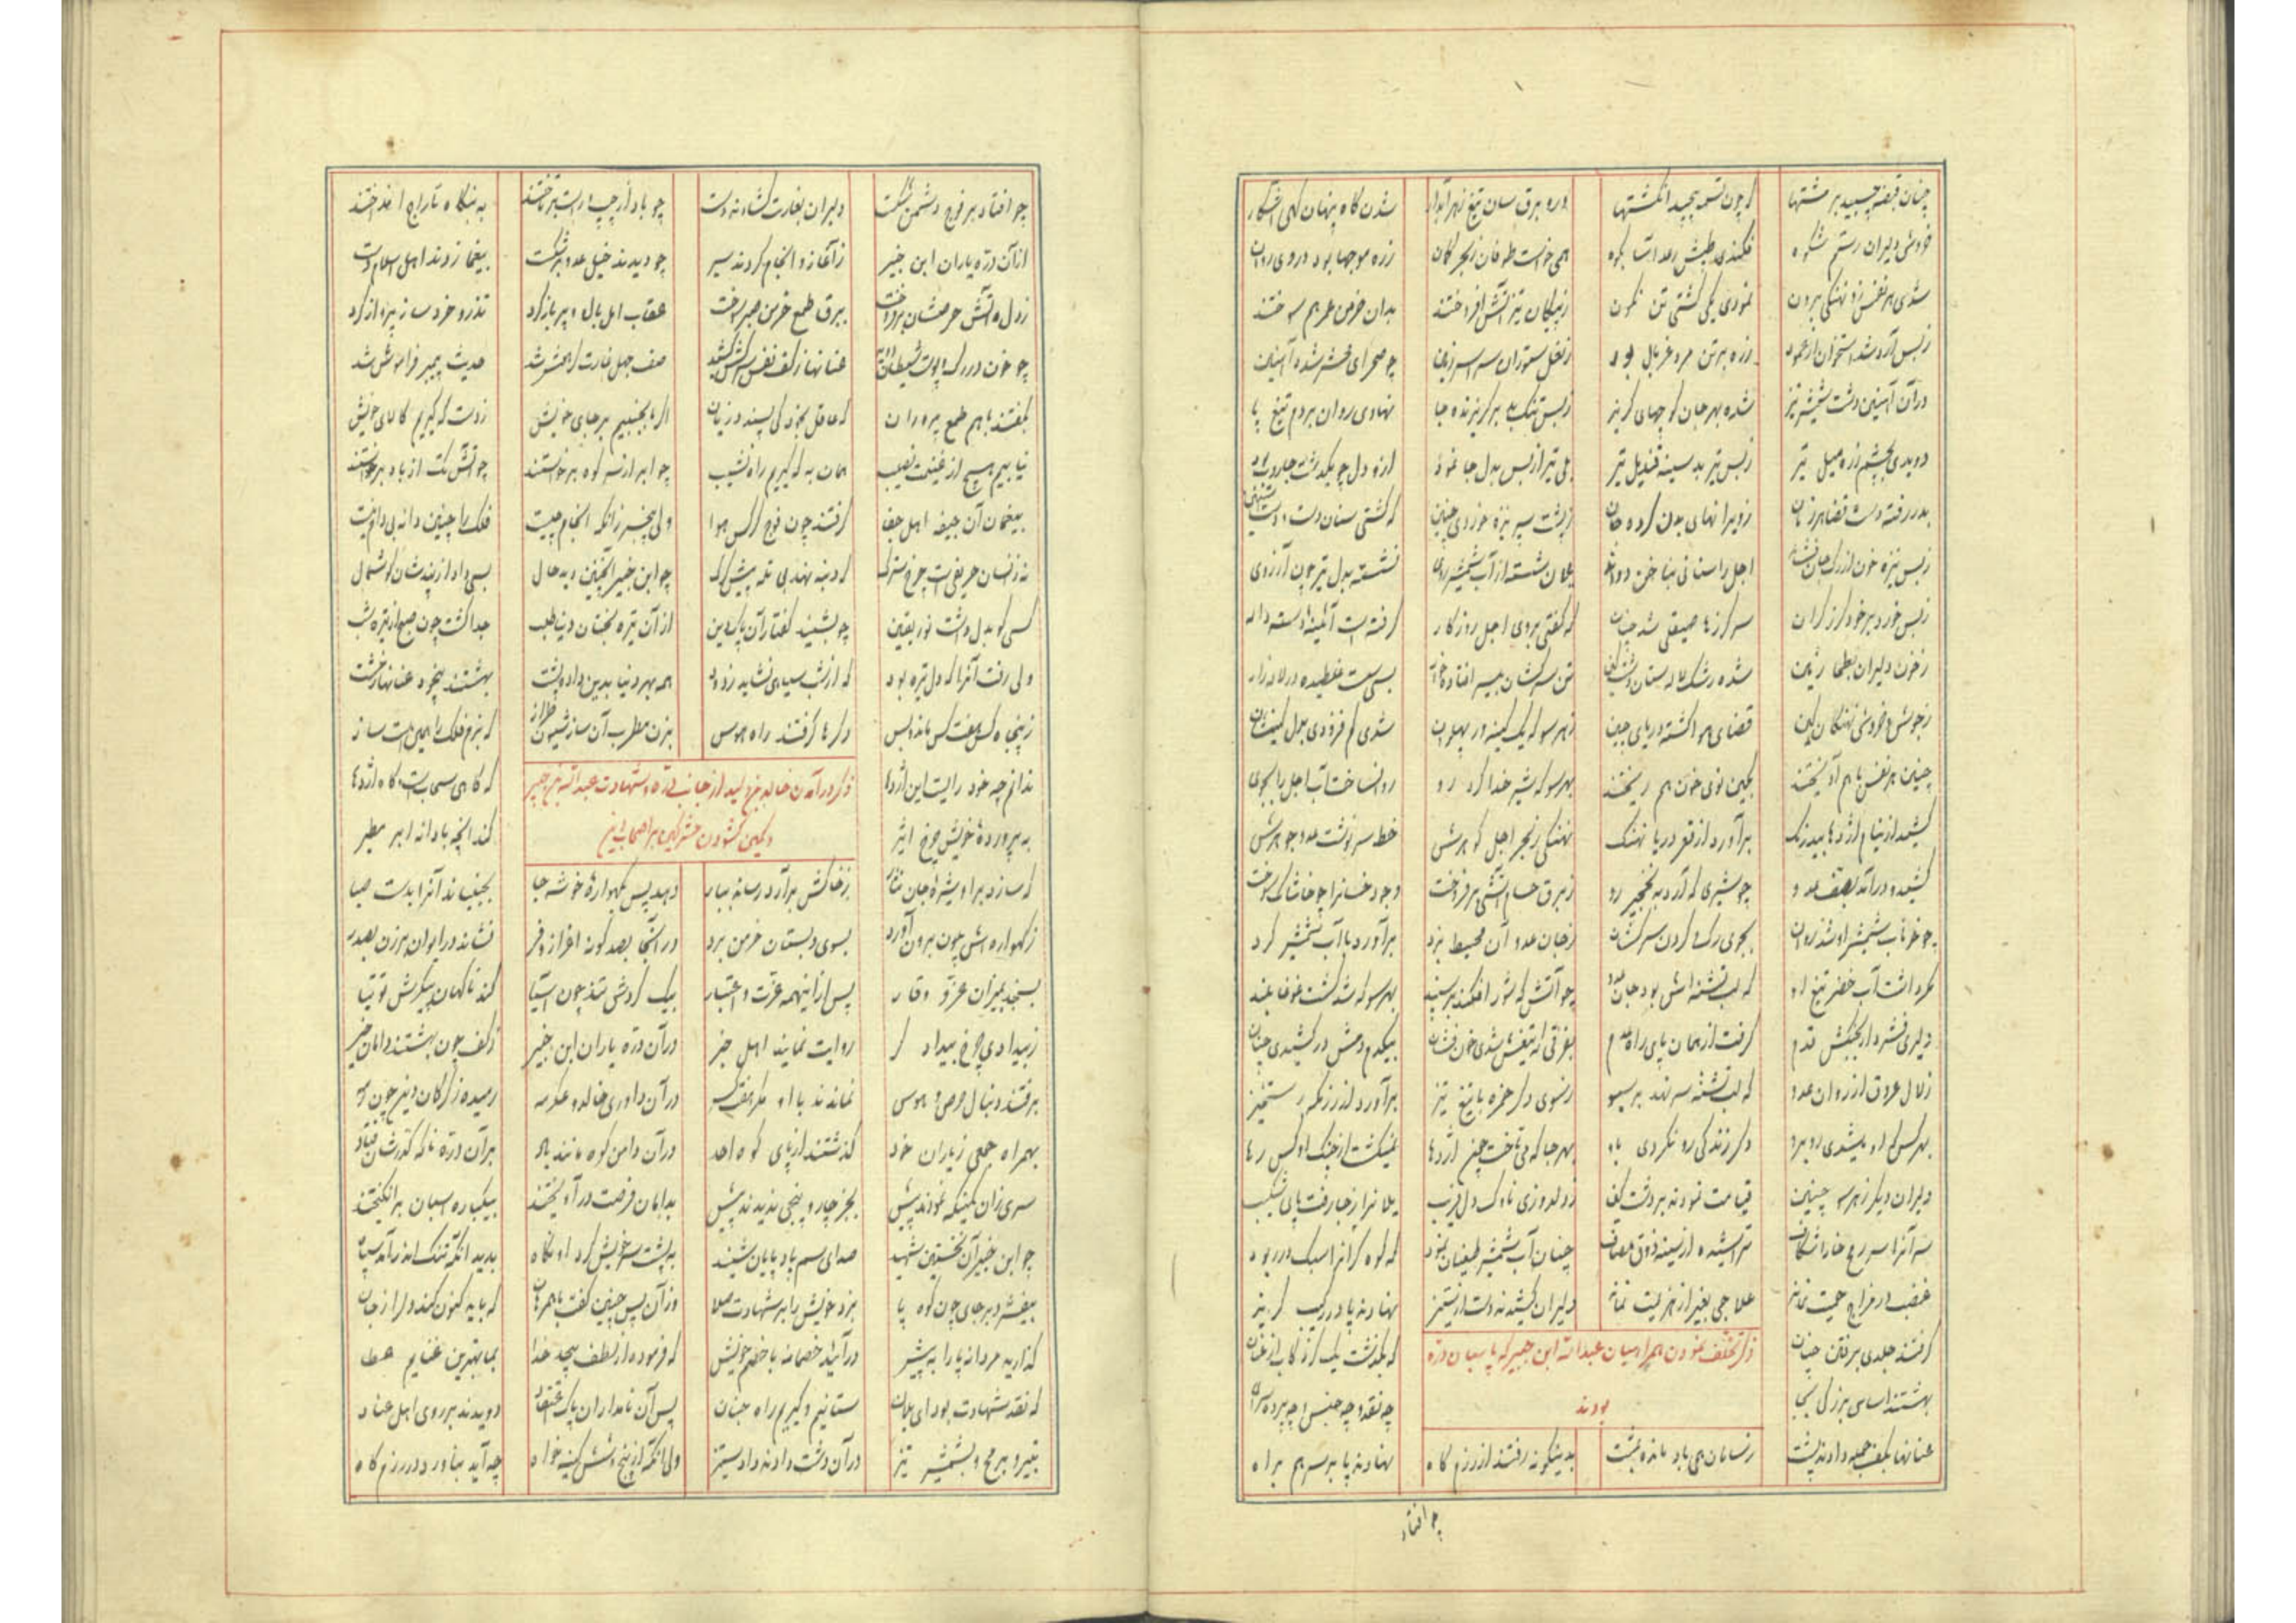 چنان قبضه چسبید بر مشتها که چون تسمه پیچید انگشتها درو برق سان تیغ زهر آبدار شدن گاه پنهان گهی آشکار
خروش دلیران رستم شکوه فکندی طپش رعد آسا بکوه همی خواست طوفان ز بحر کمان زره موجها بود در وی روان
شدی هر نفس زو نهنگی برون نمودی یکی کشتی تن نگون ز پیکان تیز آتش افروختند بدان خرمن عمر هم سوختند
ز بس آرد شد استخوان از عمود زره بر تن مرد غربال بود ز نعل ستوران سراسر زمین چو صحرای محشر شده آهنین
در آن آهنین دشت شمشیر تیز شده بهر جان کوچهای گریز ز بس تنگ بد بر گریزنده جا نهادی روان بر دم تیغ پا
دویدی بچشم زره میل تیر ز بس تیر بد سینه قندیل تیر
بدر رفته دست قضا هر زمان ز ویرانهای بدن کرده جان ز پشت سپر نیزه خوردی چنین که گشتی سنان دست
ز بس نیزه خون از رگ جان گشاد یلان شسته از آب شمشیر روی نشسته بدل تیر چون آرزوی
ز بس خورد بر خود گرز گران سر گرزها صیقلی شد چنان که گفتی بروی اجل روزگار گرفته است آئینه دسته دار
ز خون دلیران بطحا زمین شده رشک لاله ستان تن سرکشان سپر افتاده خوار بسی مست غلطیده در لاله زار
ز جوش و خروش نهنگان کین فضای هوا گشته دریای چین ز هر سو که یک کینه ور پهلوان شدی کم فزودی بدل کینه‌شان
چنین هر نفس با هم آویختند بکین نوی خون هم ریختند بهر سو که شیر خدا کرد رو روانساخت آب اجل را بجوی
کشید از نیام اژدها بیدرنگ برآورد از قعر دریا نهنگ نهنگی ز بحر اجل گوهرش خط سرنوشت عدو جوهرش
کشید و درآمد بصف عدو چو شیری که آرد به نخجیر رو ز برق حسام آتشی برفروخت وجود خسان را چو خاشاک سوخت
چو خوناب شمشیر او شد روان بجوی رگ و گردن سرکشان ز جان عدو آن محیط نبرد برآورد با آب شمشیر گرد
مگر داشت آب خضر تیغ او که لب تشنه اش بود جان عدو چو آتش که شور افکند بر سپند بهر سو که شد گشت غوغا بلند
دلیری فشرد ار بجنگش قدم گرفت از همان پای راه عدم بفرقی که تیغش شدی خونفشان بیکدم دمش در کشیدی چنان
زلال عروق از روان عدو که لب تشنه سر نهد بر سبو ز سوی دگر حمزه با تیغ تیز برآورد از رزمگه رستخیز
بهر کس که او میشدی روبرو دگر زندگی رو نکردی باو بهر جا که می‌تاخت چون اژدها نمیگشت از چنگ او کس رها
دلیران دیگر ز هر سو چنین قیامت نمودند بر دشت کین ز دلدوزی ناوک دل فریب یلان را ز جا رفت پای شکیب
تراشیده از سینه ذوق مصاف چنان آب شمشیر طغیان نمود که کوه گران را سبک در ربود
غضب در مزاج حمیت نماند علاجی بغیر از هزیمت نماند دلیران کشیدند دست از ستیز نهادند پا در رکیب گریز
گرفتند جلدی برفتن چنان که بگذشت یک گز رکاب از عنان
بهشتند اساس بزرگی بجا چه نقد و چه جنس و چه پرده سرا
ذکر تخلف نمودن همراهیان عبدالله ابن جبیر که پاسبان دره
بودند
عنانها بکف جمله دادند پشت بدینگونه رفتند از رزمگاه نهادند پا بر سر هم براه
چو افتاد
چو افتاد بر فوج دشمن شکست دلیران بغارت گشادند دست چو باد از چپ و راست برتاختند به بنگاه تاراج انداختند
از آن دره یاران ابن جبیر ز آغاز و انجام کردند سیر چو دیدند خیل عدو در شکست بیغما زدند اهل اسلام دست
ز دل آتش حرصشان برفروخت ببرق طمع خرمن صبر سوخت عقاب امل بال و پر باز کرد تذرو خرد ساز پرواز کرد
چو خون در رگ و پوست شیطان دوید عنانها ز کف نفس سرکش کشید صف جهل غارت گر هوش شد حدیث پیمبر فراموش شد
بگفتند با هم طمع پروران که عاقل بخود کی پسندد زیان اگر ما بجنبیم بر جای خویش ز دست که گیریم کالای خویش
نیابیم هیچ از غنیمت نصیب همان به که گیریم راه نشیب چو ابر از سر کوه برخاستند چو آتش کمک از باد برخواستند
بیغمای آن جیفه اهل جفا گرفتند چون فوج کرکس هوا ولی بیخبر زانکه انجام چیست فلک را چنین دانه بی دام نیست
نه زانسان حریفی است چرخ سترک که دنبه نهد بی تله پیش گرگ چو ابن جبیر آنچنین دید حال بسی داد از پندشان گوشمال
کسی کو بدل داشت نور یقین چو بشنید گفتار آن پاک دین از آن تیره بختان دنیا طلب جدا گشت چون صبح از تیره شب
ولی رفت آنرا که دل تیره بود که از شب سیاهی نشاید زدود همه بهر دنیا بدین داده پشت بهشتند بیخود عنانها ز مشت
ز پنجاه کس هفت کس ماند و بس دگرها گرفتند راه هوس بزن مطرب آن ساز شیون طراز که بزم فلک را همین است ساز
ندانم چه خود رایست این اژدها که گاهی سحابست و گاه اژدها
به پرورده خویش چرخ اثیر کند آنچه با دانه ابر مطیر
ذکر در آمدن خالد بن ولید از جانب دره و شهادت عبدالله بن جبیر
و کمین گشودن مشرکین بر اصحاب دین
که سازد بر او شیره جان نثار ز خاکش برآرد رساند ببار دهد پس بگهواره خوشه جا بجنباند آنرا بدست صبا
ز گهواره اش چون برون آورد بسوی دبستان خرمن برد در آنجا بصد گونه اعزاز و فر نشاند در ایوان برزن بصدر
بسنجد بمیزان عز و وقار پس از اینهمه عزت و اعتبار بیک گردش تند چون آسیا کند ناگهان پیکرش توتیا
ز بیدادی چرخ بیدادگر روایت نمایند اهل خبر در آن دره یاران ابن جبیر ز کف چون بهشتند دامان خیر
برفتند دنبال حرص و هوس نماندند با او مگر هفت کس در آن داوری خالد و عکرمه رمیده ز گرگان دین چون رمه
بهمراه جمعی ز یاران خود گذشتند از پای کوه احد در آن دامن کوه مانند باد بر آن دره ناگه گذرشان فتاد
سری زان کمینگه نمودند پیش بجز چار و پنجی ندیدند پیش بدامان فرصت درآویختند بیکباره اسبان برانگیختند
چو ابن جبیر آن نخستین شهید صدای سم باد پایان شنید به پشت سر خویش کرد او نگاه بدید آنکه تنگ اندر آمد سپاه
بیفشرد بر جای چون کوه پا بزد خویش را بر شهادت صلا وز آن پس چنین گفت با همرهان که باید کنون کند دل را ز جان
گذارید مردانه پا را به پیش درآئید خصمانه با خصم خویش که فرموده از لطف بیحد خدا بما بهترین غنایم عطا
که نقد شهادت بود ای یلان ستانیم و گیریم راه جنان پس آن نامداران پاک اعتقاد دویدند بر روی اهل عناد
بتیر و برمح و بشمشیر تیز در آن دشت دادند داد ستیز ولی آنکه از پنج و شش کینه خواه چه آید بناورد در رزمگاه